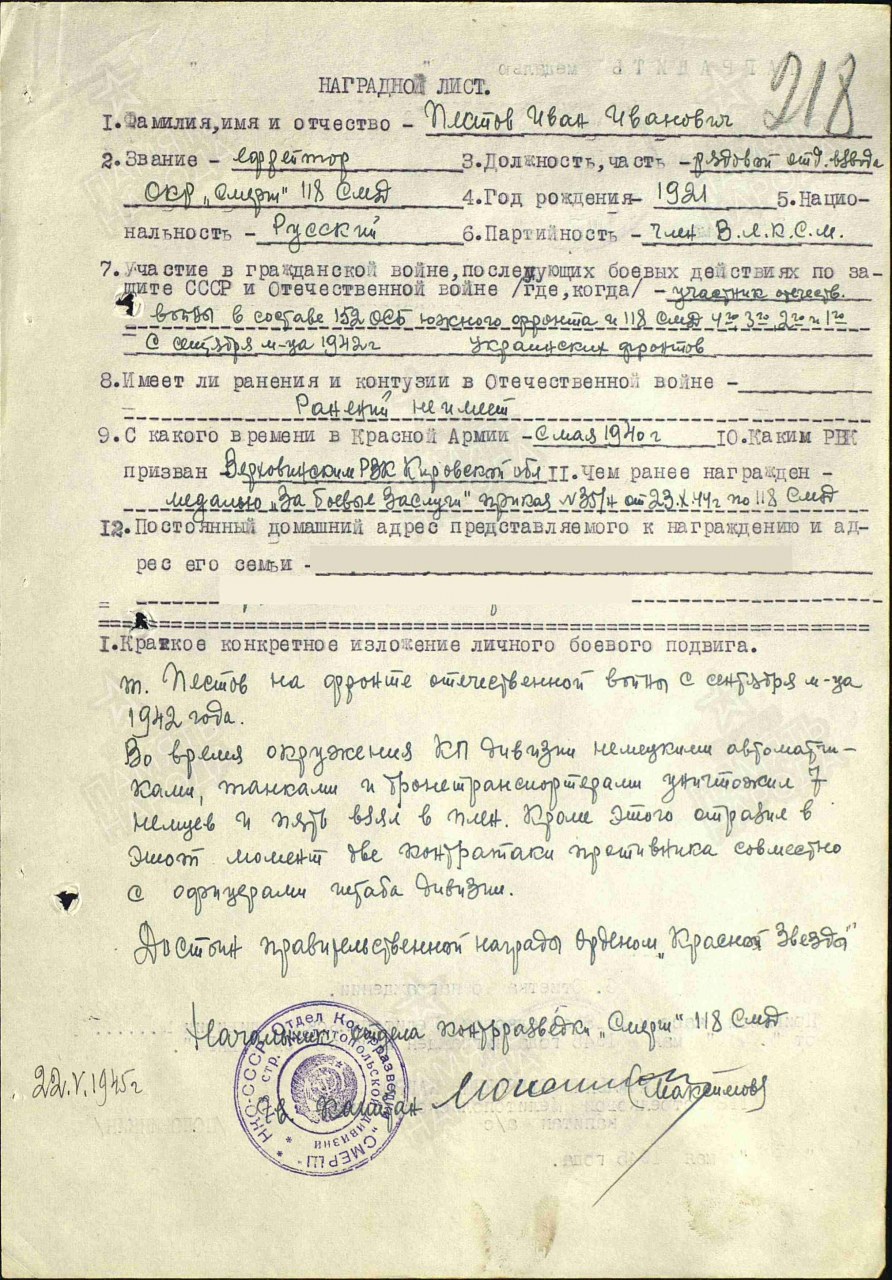 218
НАГРАДНОЙ ЛИСТ.
1. Фамилия, имя и отчество - Пестов Иван Иванович
2. Звание - ефрейтор 3. Должность, часть - рядовой отд. взвода
ОКР „Смерш" 118 СМД 4. Год рождения - 1921 5. Нацио-
нальность - Русский 6. Партийность - Член В.Л.К.С.М.
7. Участие в гражданской войне, последующих боевых действиях по за-
щите СССР и Отечественной войне /где, когда/ - участник отечеств.
войны в составе 152 ОСБ южного фронта и 118 СМД 4го, 3го, 2го и 1го
С сентября м-ца 1942 г Украинских фронтов
8. Имеет ли ранения и контузии в Отечественной войне -
Ранений не имеет
9. С какого времени в Красной Армии - С мая 1940 г 10. Каким РВК
призван Верховинским РВК Кировской обл 11. Чем ранее награжден -
медалью „За боевые заслуги" приказ № 35/н от 23.X.44 г по 118 СМД
12. Постоянный домашний адрес представляемого к награждению и ад-
рес его семьи -
1. Краткое конкретное изложение личного боевого подвига.
т. Пестов на фронте отечественной войны с сентября м-ца
1942 года.
Во время окружения КП дивизии немецкими автоматчи-
ками, танками и бронетранспортерами уничтожил 7
немцев и пять взял в плен. Кроме этого отразил в
этот момент две контратаки противника совместно
с офицерами штаба дивизии.
Достоин правительственной награды орденом „Красной Звезды"
Начальник отдела контрразведки „Смерш" 118 СМД
22.V.1945 г
гв. Капитан (Максимов)
НКО-СССР Отдел Контрразведки "СМЕРШ"
стр. Мелитопольской дивизии